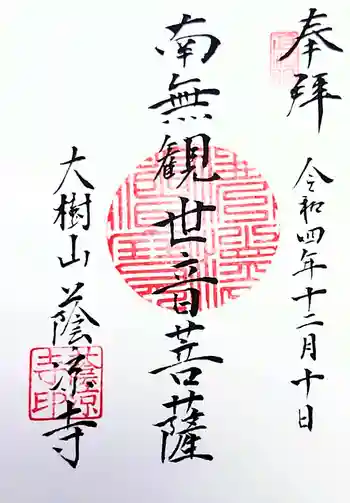 奉拝
令和四年十二月十日
南無観世音菩薩
大樹山蔭凉寺
蔭凉寺印